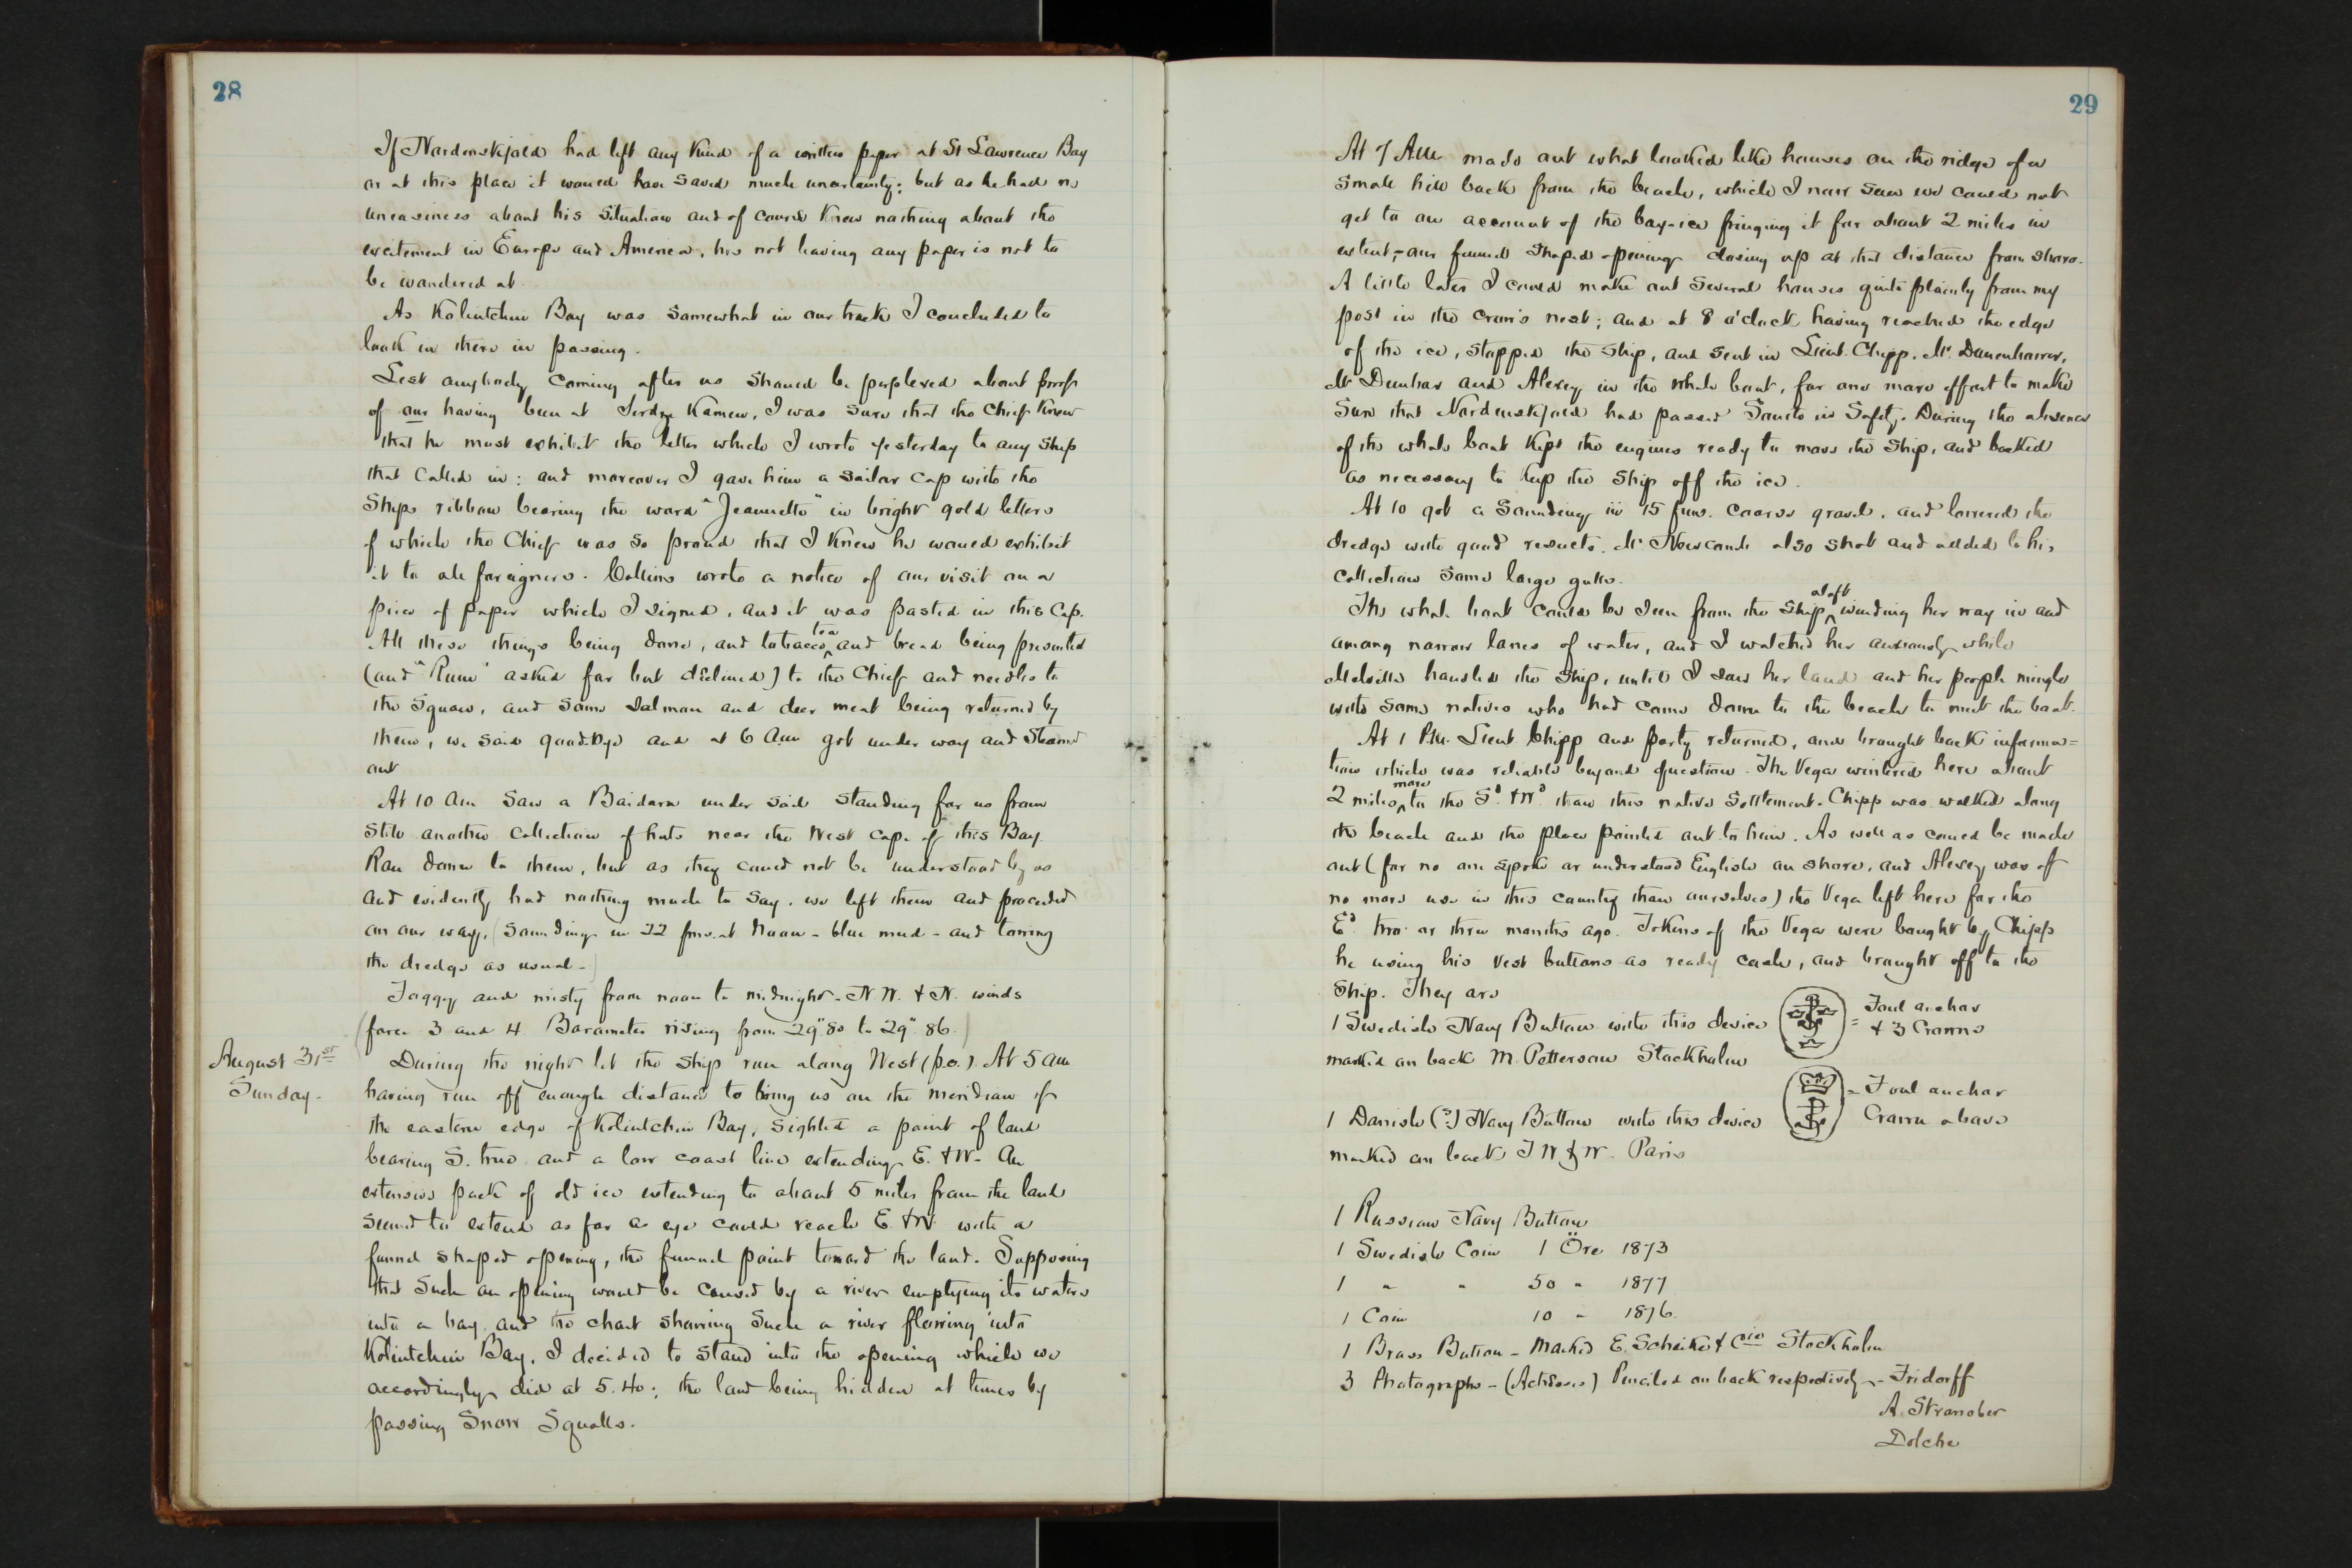 28
If Nordenskjold had left any kind of a written paper at St Lawrence Bay
or at this place it would have saved much uncertainty; but as he had no
uneasiness about his situation and of course knew nothing about the
excitement in Europe and America, his not having any paper is not to
be wondered at.
As Koliutchin Bay was somewhat in our track I concluded to
look in there in passing.
Lest anybody coming after us should be perplexed about proof
of our having been at Serdze Kamen, I was sure that the Chief knew
that he must exhibit the letter which I wrote yesterday to any ship
that called in: and moreover I gave him a sailor cap with the
Ships ribbon bearing the word "Jeannette" in bright gold letters
of which the Chief was so proud that I knew he would exhibit
it to all foreigners. Collins wrote a notice of our visit on a
piece of paper which I signed, and it was pasted in this Cap.
All these things being done, and tobacco tea and bread being presented
(and "Rum" asked for but declined) to the Chief and needles to
the Squaw, and some salmon and deer meat being returned by
them, we said good-bye and at 6 a.m got under way and steamed
out
At 10 am saw a Baidara under sail standing for us from
still another collection of huts near the West Cape of this Bay.
Ran down to them, but as they could not be understood by us
and evidently had nothing much to say, we left them and proceeded
on our way, (sounding in 22 fms. at Noon - blue mud - and towing
the dredge as usual -)
Foggy and misty from noon to midnight - N W. & N. winds
(force 3 and 4. Barometer rising from 29".80 to 29".86.)
August 31st
Sunday.
During the night let the ship run along West (p.c.). At 5 am
having run off enough distance to bring us on the meridian of
the eastern edge of Koliutchin Bay, sighted a point of land
bearing S. true and a low coast line extending E. & W. An
extensive pack of old ice extending to about 5 miles from the land
seemed to extend as far as eye could reach E. & W. with a
funnel shaped opening, the funnel point toward the land. Supposing
that such an opening would be caused by a river emptying its waters
into a bay and the chart showing such a river flowing into
Koliutchin Bay, I decided to stand into the opening which we
accordingly did at 5.40; the land being hidden at times by
passing Snow Squalls.
29
At 7 AM made out what looked like houses on the ridge of a
small hill back from the beach, which I now saw we could not
get to on account of the bay-ice fringing it for about 2 miles in
extent, - our funnel shaped opening closing up at that distance from shore.
A little later I could make out several houses quite plainly from my
post in the crow's nest; and at 8 o'clock having reached the edge
of the ice, stopped the ship, and sent in Lieut. Chipp, Mr. Danenhower,
Mr Dunbar and Alexey in the whale boat, for one more effort to make
sure that Nordenskjold had passed South in safety. During the absence
of the whale boat kept the engines ready to move the ship, and backed
as necessary to keep the ship off the ice.
At 10 got a sounding in 15 fms. coarse gravel, and lowered the
dredge with good results. Mr. Newcomb also shot and added to his
collection some large gulls.
The whale boat could be seen from the ship aloft winding her way in and
among narrow lanes of water, and I watched her anxiously while
Melville handled the ship, until I saw her land and her people mingle
with some natives who had come down to the beach to meet the boat.
At 1 P.M. Lieut. Chipp and party returned, and brought back informa=
tion which was reliable beyond question. The Vega wintered here about
2 miles more to the Sd. & Wd. than this native settlement. Chipp was walked along
the beach and the place pointed out to him. As well as could be made
out (for no one spoke or understood English on shore, and Alexey was of
no more use in this country than ourselves) the Vega left here for the
Ed two or three months ago. Tokens of the Vega were bought by Chipp
he using his vest buttons as ready cash, and brought off to the
Ship. They are
1 Swedish Navy Button with this device = Foul anchor
& 3 Crowns
marked on back M. Petterson Stockholm
1 Danish (?) Navy Button with this device = Foul anchor
Crown above
marked on back T W & W. Paris
1 Russian Navy Button
1 Swedish Coin 1 Öre 1873
1 " " 50 " 1877
1 Coin 10 " 1876.
1 Brass Button - Marked E. Scheike & Cio Stockholm
3 Photographs - (Actresses) Penciled on back respectively - Fridorff
A. Strandber
Dolche